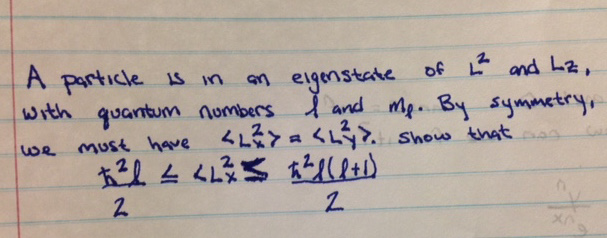 A particle is in an eigenstate of L² and Lz,
with quantum numbers l and mℓ. By symmetry,
we must have <Lx²> = <Ly²>. Show that
ħ²l/2 ≤ <Lx² ≤ ħ²l(l+1)/2